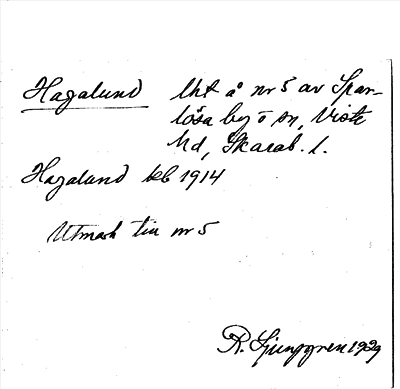 Hagalund lht å nr 5 av Spar-
lösa by o sn, Viste
hd, Skarab. l.
Hagalund kb 1914
Utmark till nr 5
R. Ljunggren 1929